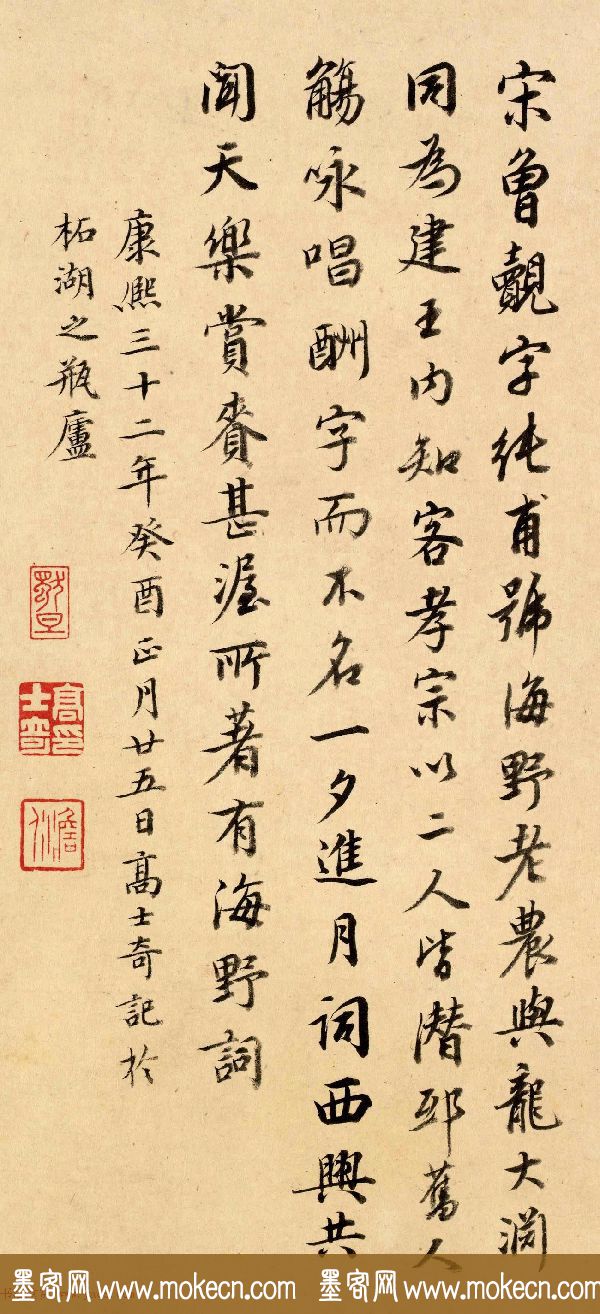 宋曾觌字純甫號海野老農與龍大淵
同為建王内知客孝宗以二人皆潛邸舊人
觴咏唱酬字而不名一夕進月詞西興共
聞天樂賞賚甚渥所著有海野詞
康熙三十二年癸酉正月廿五日高士奇記於
柘湖之瓶廬
高士奇印
墨客网 www.mokecn.com 墨客网 www.mokecn.com